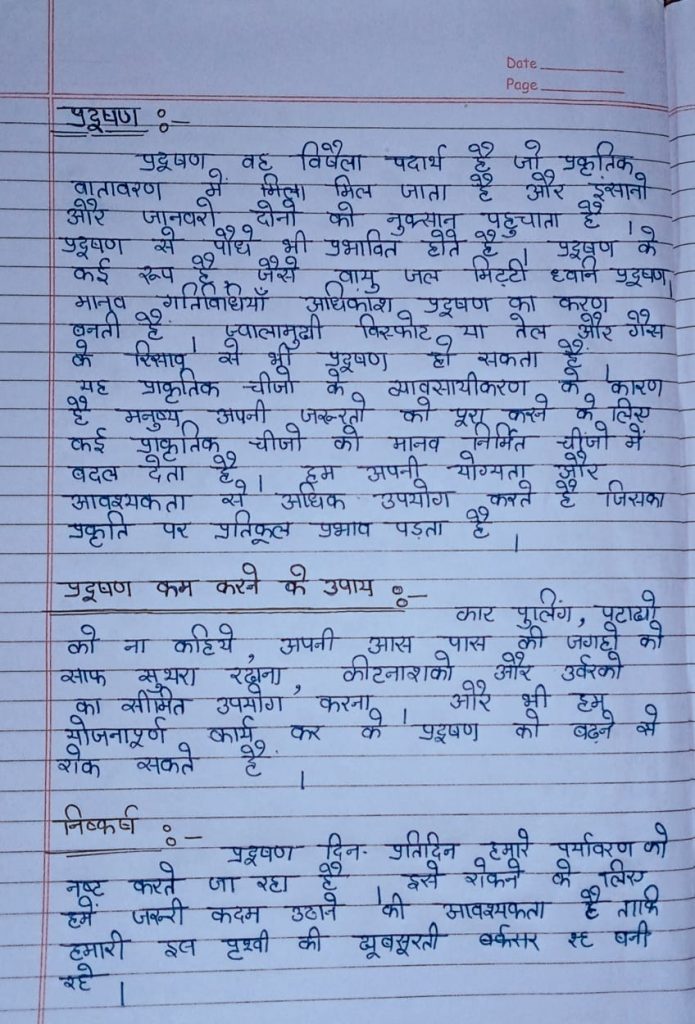 Date
Page
प्रदूषण :-
प्रदूषण वह विषैला पदार्थ है जो प्रकृतिक
वातावरण में मिला मिल जाता है और इंसानो
और जानवरो दोनो को नुक्सान पहुचाता है।
प्रदूषण से पौधे भी प्रभावित होते है। प्रदूषण के
कई रूप है, जैसे वायु जल मिट्टी ध्वनि प्रदूषण,
मानव गतिविधियाँ अधिकांश प्रदूषण का करण
बनती है। ज्वालामुखी विस्फोट या तेल और गैस
के रिसाव से भी प्रदूषण हो सकता है।
यह प्राकृतिक चीजो के व्यावसायीकरण के कारण
है मनुष्य अपनी जरूरतो को पूरा करने के लिए
कई प्राकृतिक चीजो को मानव निर्मित चीजो में
बदल देता है। हम अपनी योग्यता और
आवश्यकता से अधिक उपयोग करते है जिसका
प्रकृति पर प्रतिकूल प्रभाव पड़ता है।
प्रदूषण कम करने के उपाय :-
कार पुलिंग, पटाखो
को ना कहिये, अपनी आस पास की जगहो को
साफ सुथरा रखना, कीटनाशको और उर्वरको
का सीमित उपयोग करना। और भी हम
योजनापूर्ण कार्य कर के प्रदूषण को बढ़ने से
रोक सकते है।
निष्कर्ष :-
प्रदूषण दिन-प्रतिदिन हमारे पर्यावरण को
नष्ट करते जा रहा है। इसे रोकने के लिए
हमें जरूरी कदम उठाने की आवश्यकता है ताकि
हमारी इस पृथ्वी की खूबसूरती बनी
रहे।